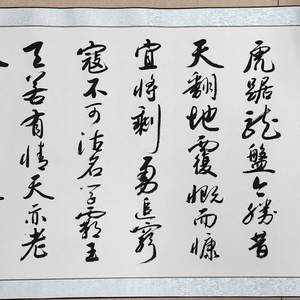 虎踞龙盘今胜昔
天翻地覆慨而慷
宜将剩勇追穷
寇不可沽名学霸王
天若有情天亦老